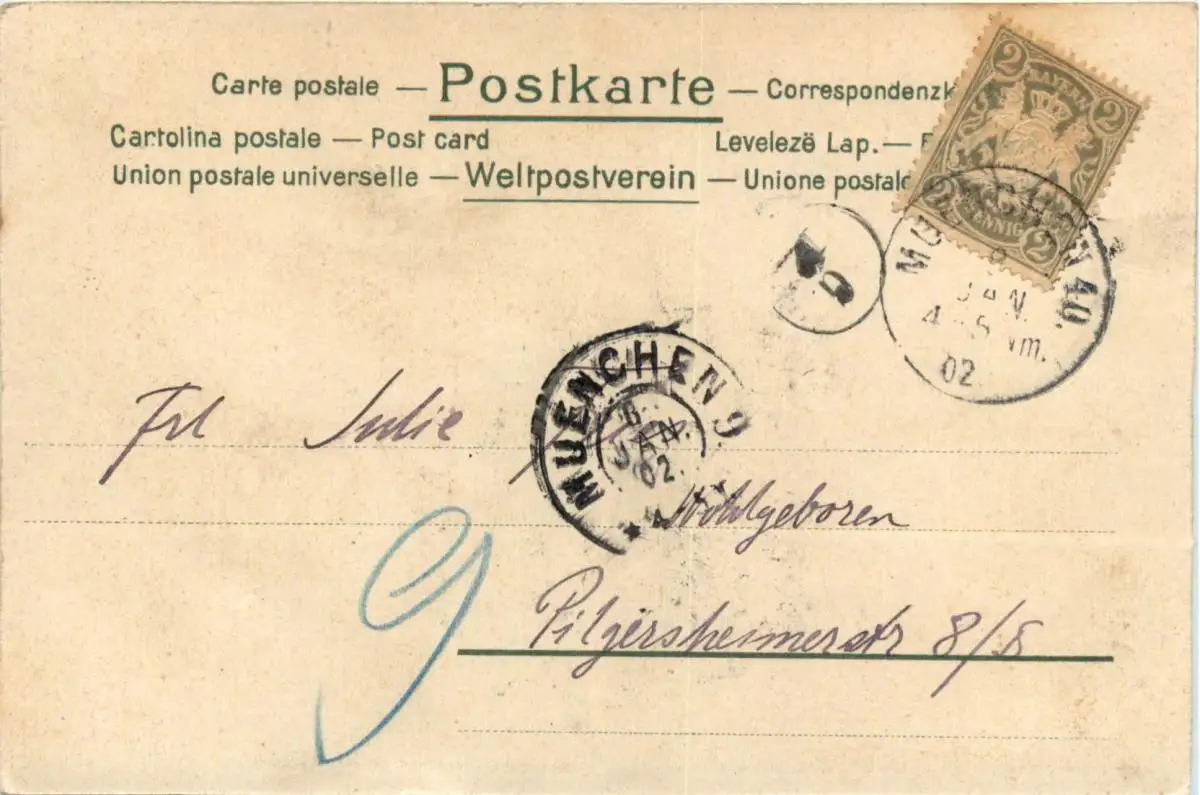 Carte postale — Postkarte — Correspondenzk
Cartolina postale — Post card Levelezö Lap. —
Union postale universelle — Weltpostverein — Unione postale
2 BAYERN 2
2 PFENNIG 2
MUENCHEN 40.
JAN.
4-5 Nm.
02
MUENCHEN 9
JAN.
02.
Frl Julie
Wohlgeboren
9
Pilgersheimerstr 8/